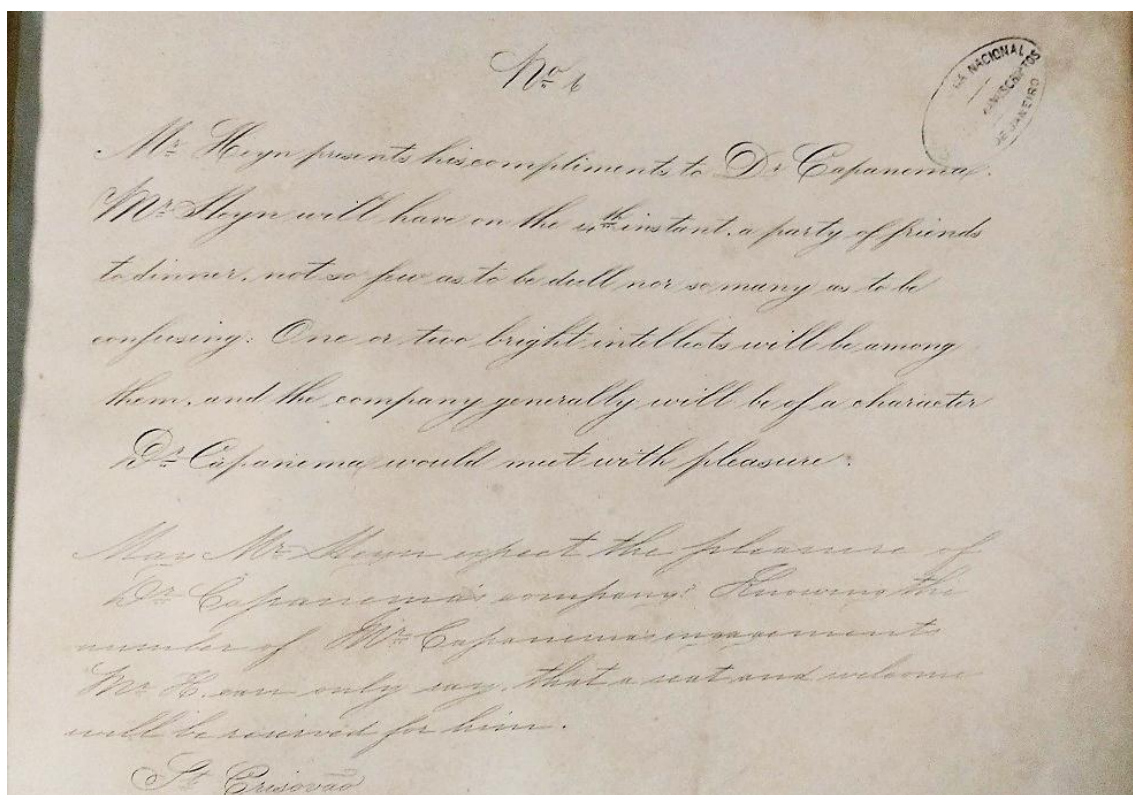 No. 6
LA NACIONAL
MANUSCRIPTOS
DE JANEIRO
Mr. Heyn presents his compliments to Dr Capanema.
Mr. Heyn will have on the 4th instant, a party of friends
to dinner, not so few as to be dull nor so many as to be
confusing: One or two bright intellects will be among
them, and the company generally will be of a character
Dr. Capanema would meet with pleasure.
May Mr. Heyn expect the pleasure of
Dr. Capanema's company? Knowing the
number of Mr. Capanema's engagements
Mr. H. can only say, that a seat and welcome
will be reserved for him.
St. Crisovão